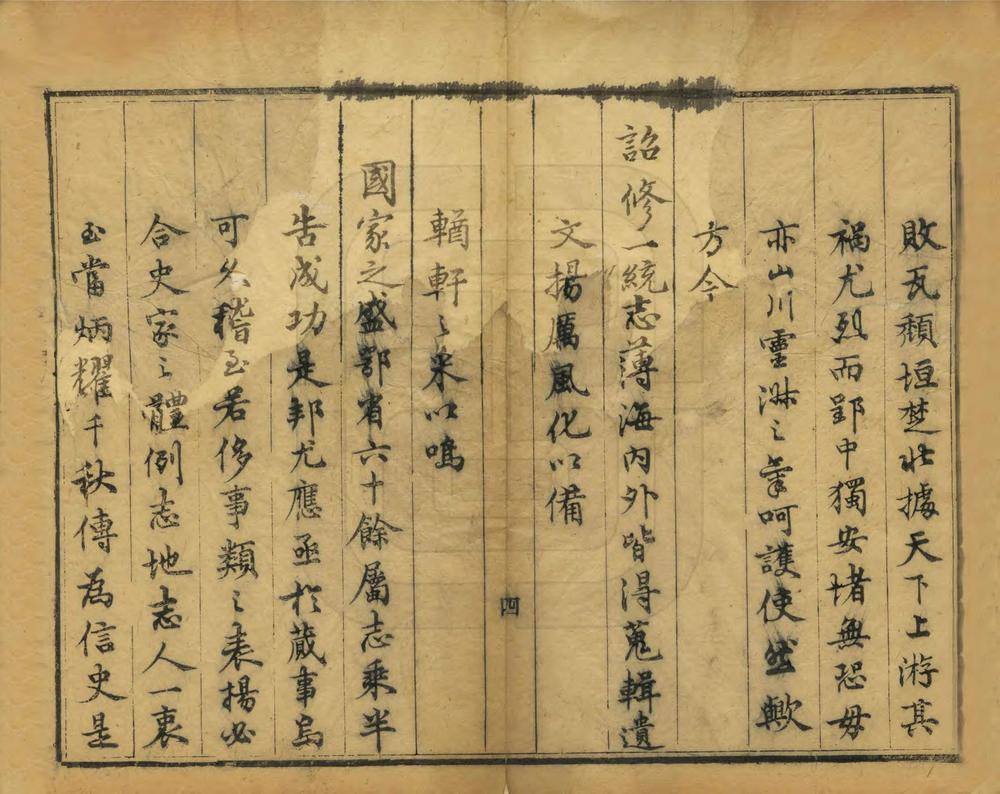 敗瓦頹垣楚北據天下上游其
禍尤烈而郢中獨安堵無恐毋
亦山川靈淋之氣呵護使然歟
方今
詔修一統志薄海內外皆得蒐輯遺
文揚厲風化以備
四
輶軒之采以鳴
國家之盛鄂省六十餘屬志乘半
告成功是邦尤應亟於蕆事烏
可久稽至若侈事類之表揚必
合史家之體例志地志人一衷
至當炳耀千秋傳為信史是